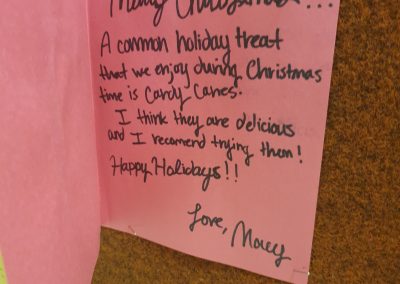 Merry Christmas...
A common holiday treat
that we enjoy during Christmas
time is Candy Canes.
I think they are delicious
and I recomend trying them!
Happy Holidays!!
Love, Macy